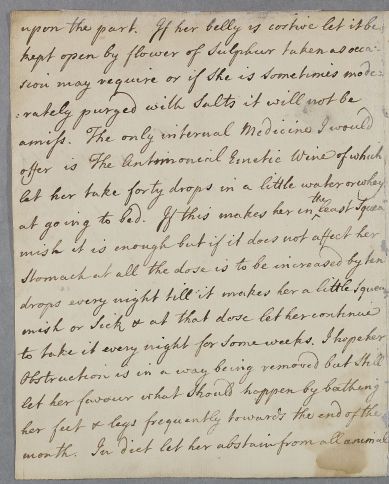 upon the part. If her belly is costive let it be
kept open by flower of Sulphur taken as occa-
sion may require or if she is sometimes mode-
-rately purged with Salts it will not be
amiss. The only internal Medicine I would
offer is The Antimonial Emetic Wine of which
let her take forty drops in a little water or whey
at going to bed. If this makes her in the least Squea-
mish it is enough but if it does not affect her
Stomach at all the dose is to be increased by ten
drops every night till it makes her a little Squea-
mish or Sick & at that dose let her continue
to take it every night for some weeks. I hope her
Obstruction is in a way being removed but still
let her favour what Should happen by bathing
her feet & legs frequently towards the end of the
month. In diet let her abstain from all animal